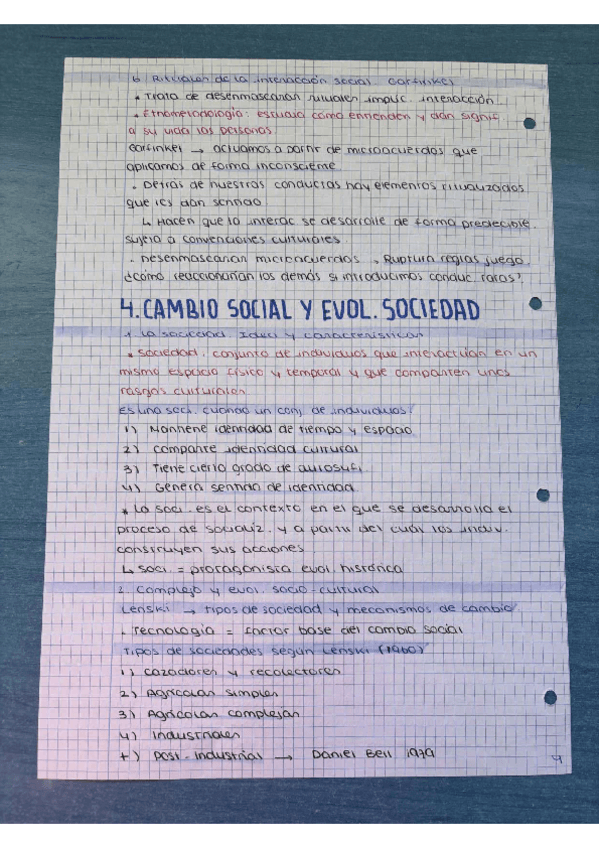 6. Rituales de la interacción social. Garfinkel
• Trata de desenmascarar rituales implic. interacción
• Etnometodología: estudia cómo entienden y dan signif.
a su vida las personas
Garfinkel → actuamos a partir de microacuerdos que
aplicamos de forma inconsciente
• Detrás de nuestras conductas hay elementos ritualizados
que les dan sentido
↳ Hacen que la interac. se desarrolle de forma predecible.
sujeta a convenciones culturales
• Desenmascarar microacuerdos → Ruptura reglas juego
¿cómo reaccionarían los demás si introducimos conduc. raras?
4. CAMBIO SOCIAL Y EVOL. SOCIEDAD
1. La sociedad. Idea y características
• Sociedad: conjunto de individuos que interactúan en un
mismo espacio físico y temporal y que comparten unos
rasgos culturales
Es una soci. cuando un conj. de individuos:
1) Mantiene identidad de tiempo y espacio
2) Comparte identidad cultural
3) Tiene cierto grado de autosufi.
4) Genera sentido de identidad
• La soci. es el contexto en el que se desarrolla el
proceso de socializ. y a partir del cual los indiv.
construyen sus acciones
↳ Soci. = protagonista evol. histórica
2. Complejo y evol. socio-cultural
Lenski → tipos de sociedad y mecanismos de cambio
• Tecnología = factor base del cambio social
Tipos de sociedades según Lenski (1960)
1) Cazadores y recolectores
2) Agrícolas simples
3) Agrícolas complejas
4) Industriales
+) Post-industrial → Daniel Bell 1979
4